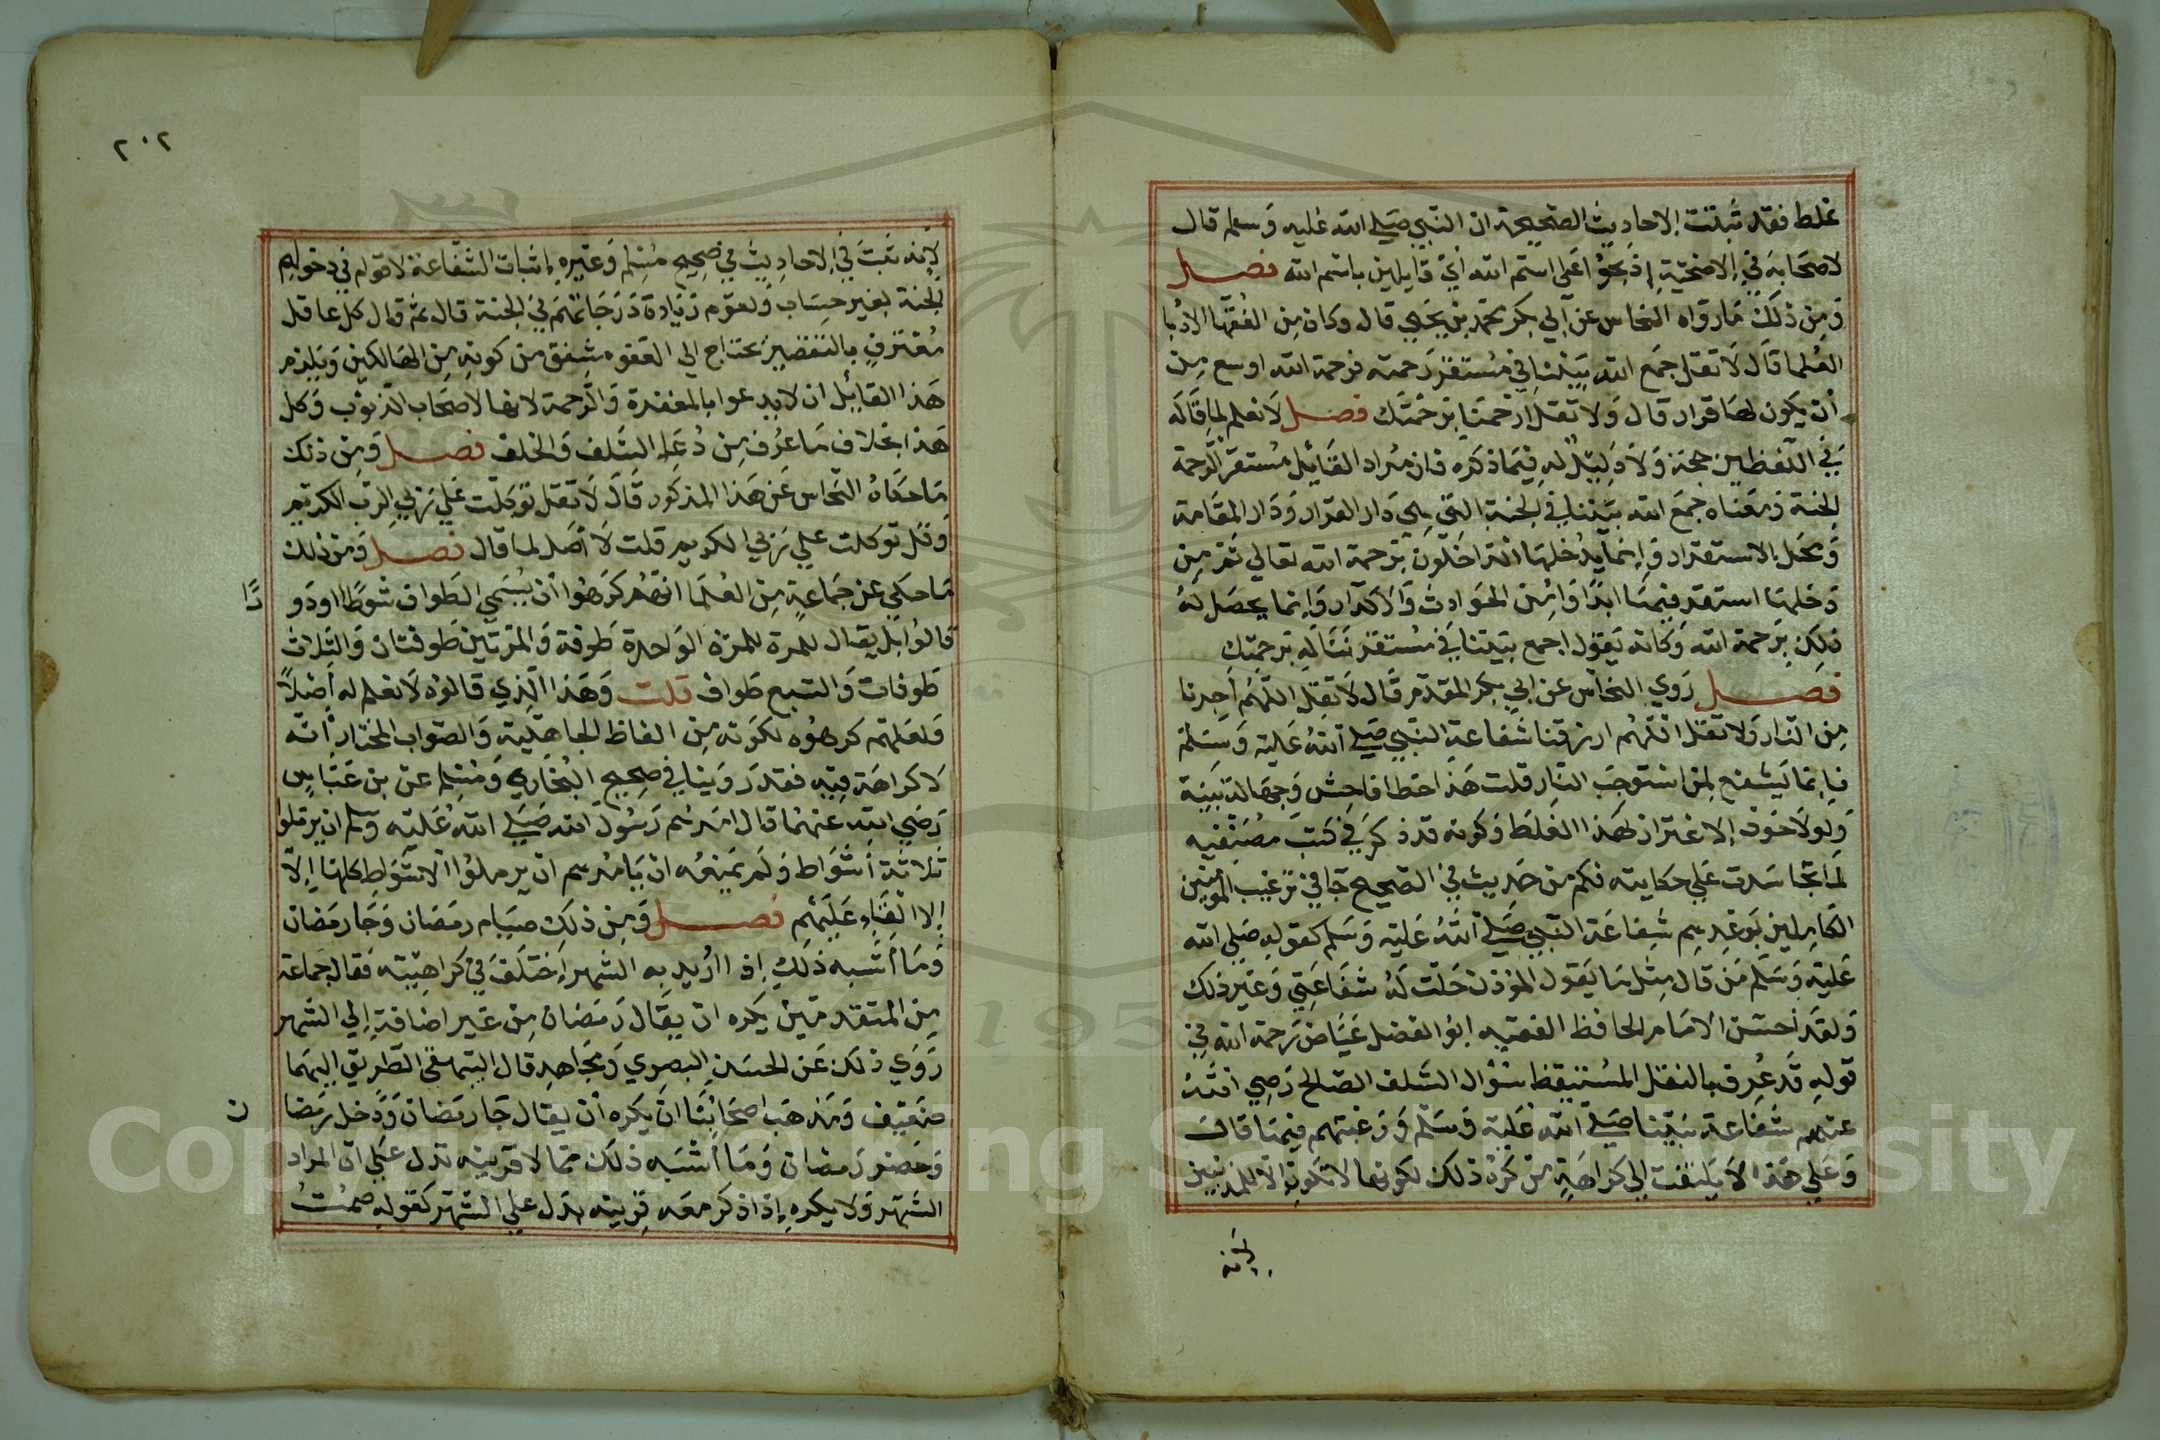 غلط فقد ثبتت الاحاديث الصحيحة ان النبي صلي الله عليه وسلم قال
لاصحابه في الاضحية اذبحوا علي اسم الله اي قايلين باسم الله فصل
ومن ذلك ما رواه النحاس عن ابي بكر محمد بن يحيي قال وكان من الفقها الادبا
العلما قال لا تقل جمع الله بيننا في مستقر رحمته فرحمة الله اوسع من
ان يكون لها قرار قال ولا تقل ارحمنا برحمتك فصل لا نعلم لما قاله
في اللفظين حجة ولا دليل له فيما ذكره فان مراد القائل مستقر الرحمة
الجنة ومعناه جمع الله بيننا في الجنة التي هي دار القرار ودار المقامة
ومحل الاستقرار وانما يدخلها الداخلون برحمة الله تعالي ثم من
دخلها استقر فيها ابدا وامن الحوادث والاكدار وانما يحصل له
ذلك برحمة الله وكانه يقول اجمع بيننا في مستقر نناله برحمتك
فصل روي النحاس عن ابي بكر المقدم قال لا تقل اللهم اجرنا
من النار ولا تقل اللهم ارزقنا شفاعة النبي صلي الله عليه وسلم
فانما يشفع لمن استوجب النار قلت هذا خطا فاحش وجهالة بينة
ولولا خوف الاغترار لهذا الغلط وكونه قد ذكر في كتب مصنفيه
لما تجاسرت علي حكايته فكم من حديث في الصحيح جا في ترغيب المؤمنين
الكاملين بوعدهم شفاعة النبي صلي الله عليه وسلم كقوله صلي الله
عليه وسلم من قال مثل ما يقول المؤذن حلت له شفاعتي وغير ذلك
ولقد احسن الامام الحافظ الفقيه ابو الفضل عياض رحمة الله في
قوله قد عرف بالنقل المستفيض سؤال السلف الصالح رضي الله
عنهم شفاعة نبينا صلي الله عليه وسلم ورغبتهم فيها قال
وعلي هذا لا يلتفت الي كراهة من كره ذلك لكونها لا تكون الا للمذنبين
لانه
٢٠٢
لانه ثبت في الاحاديث في صحيح مسلم وغيره باثبات الشفاعة لاقوام في دخولهم
الجنة بغير حساب ولقوم زيادة درجاتهم في الجنة قال ثم قال كل عاقل
معترف بالتقصير محتاج الي العفو مشفق من كونه من الهالكين ويلزم
هذا القائل ان لا يدعوا بالمغفرة والرحمة لانها لاصحاب الذنوب وكل
هذا خلاف ما عرف من دعاء السلف والخلف فصل ومن ذلك
ما حكاه النحاس عن هذا المذكور قال لا تقل توكلت علي ربي الرب الكريم
وقل توكلت علي ربي الكريم قلت لا اصل لما قال فصل ومن ذلك
ما حكي عن جماعة من العلما انهم كرهوا ان يسمي الطواف شوطا او دو
رًا
قالوا بل يقال للمرة للمرة الواحدة طوفة والمرتين طوفتان والثلاث
طوفات والسبع طواف قلت وهذا الذي قالوه لا نعلم له اصلا
ولعلهم كرهوه لكونه من الفاظ الجاهلية والصواب المختار انه
لا كراهة فيه فقد روينا في صحيح البخاري ومسلم عن بن عباس
رضي الله عنهما قال امرهم رسول الله صلي الله عليه وسلم ان يرملوا
ثلاثة اشواط ولم يمنعه ان يامرهم ان يرملوا الاشواط كلها الا
الا الابقاء عليهم فصل ومن ذلك صيام رمضان وجا رمضان
وما اشبه ذلك اذا اريد به الشهر اختلف في كراهيته فقال جماعة
من المتقدمين يكره ان يقال رمضان من غير اضافة الي الشهر
روي ذلك عن الحسن البصري ومجاهد قال البيهقي الطريق اليهما
ضعيف ومذهب اصحابنا ان يكره ان يقال جا رمضان ودخل رمضا
ن
وحضر رمضان وما اشبه ذلك مما لا قرينه تدل علي ان المراد
الشهر ولا يكره اذا ذكر معه قرينه تدل علي الشهر كقوله صمت
Copyright © King Saud University
1957